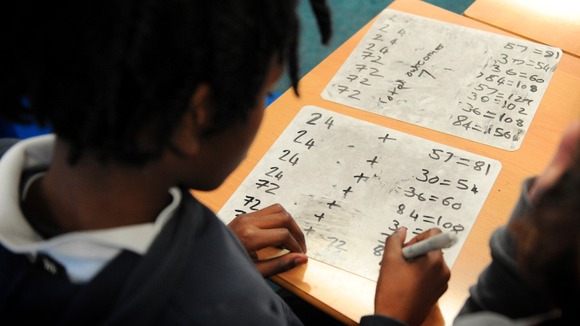 24
24
24
72
72
72
72
total outcomes
57=81
=54
36=60
84=108
30=102
36=108
84=156
24 + 57=81
24 + 30=54
24 + 36=60
24 + 84=108
72 +
72 +
72